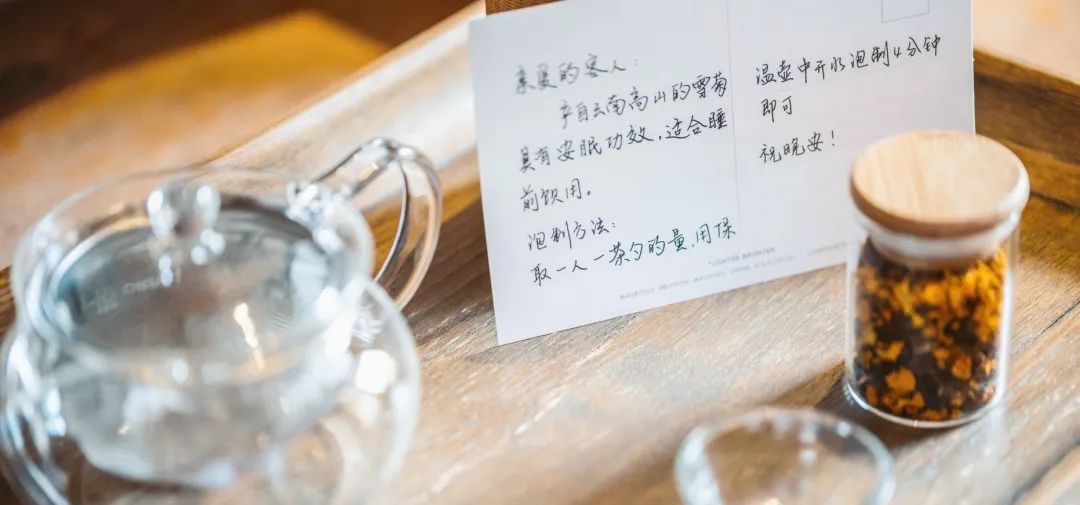 亲爱的客人：
产自云南高山的雪菊
具有安眠功效，适合睡
前饮用。
泡制方法：
取一人一茶勺的量，用保
温壶中开水泡制4分钟
即可
祝晚安！
"LIGHTER BRIGHTER